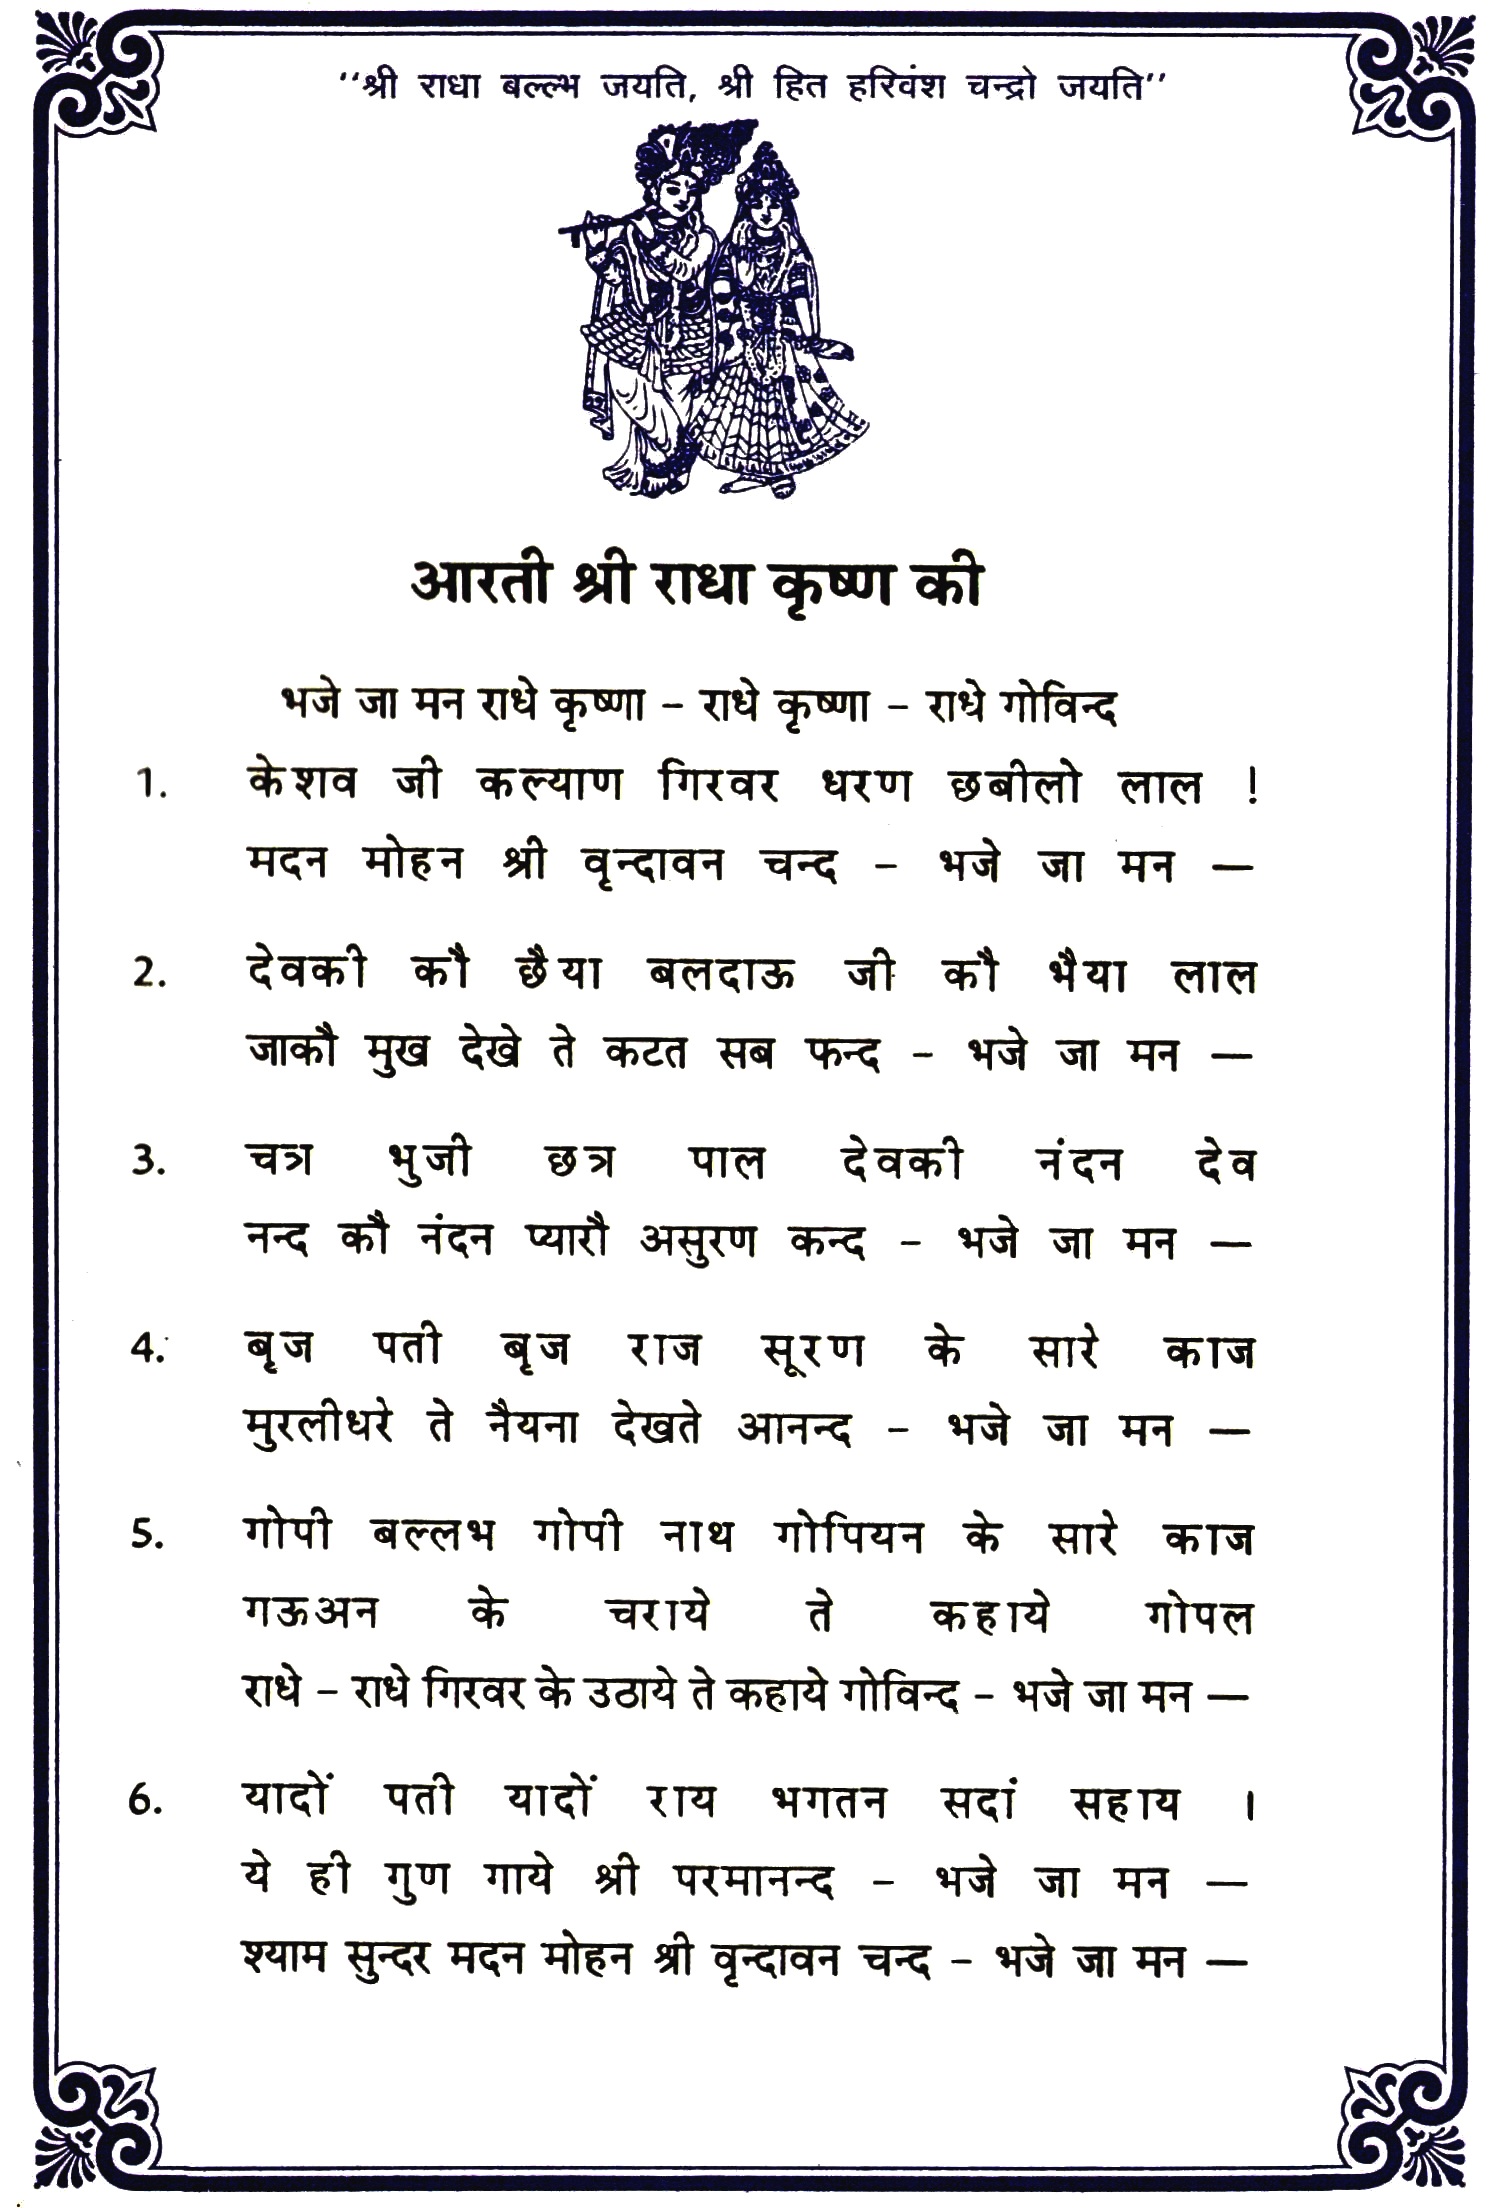 ''श्री राधा बल्ल्भ जयति, श्री हित हरिवंश चन्द्रो जयति''
आरती श्री राधा कृष्ण की
भजे जा मन राधे कृष्णा – राधे कृष्णा – राधे गोविन्द
1. केशव जी कल्याण गिरवर धरण छबीलो लाल !
मदन मोहन श्री वृन्दावन चन्द – भजे जा मन —
2. देवकी कौ छैया बलदाऊ जी कौ भैया लाल
जाकौ मुख देखे ते कटत सब फन्द – भजे जा मन —
3. चत्र भुजी छत्र पाल देवकी नंदन देव
नन्द कौ नंदन प्यारौ असुरण कन्द – भजे जा मन —
4. बृज पती बृज राज सूरण के सारे काज
मुरलीधरे ते नैयना देखते आनन्द – भजे जा मन —
5. गोपी बल्लभ गोपी नाथ गोपियन के सारे काज
गऊअन के चराये ते कहाये गोपल
राधे – राधे गिरवर के उठाये ते कहाये गोविन्द – भजे जा मन —
6. यादों पती यादों राय भगतन सदां सहाय ।
ये ही गुण गाये श्री परमानन्द – भजे जा मन —
श्याम सुन्दर मदन मोहन श्री वृन्दावन चन्द – भजे जा मन —